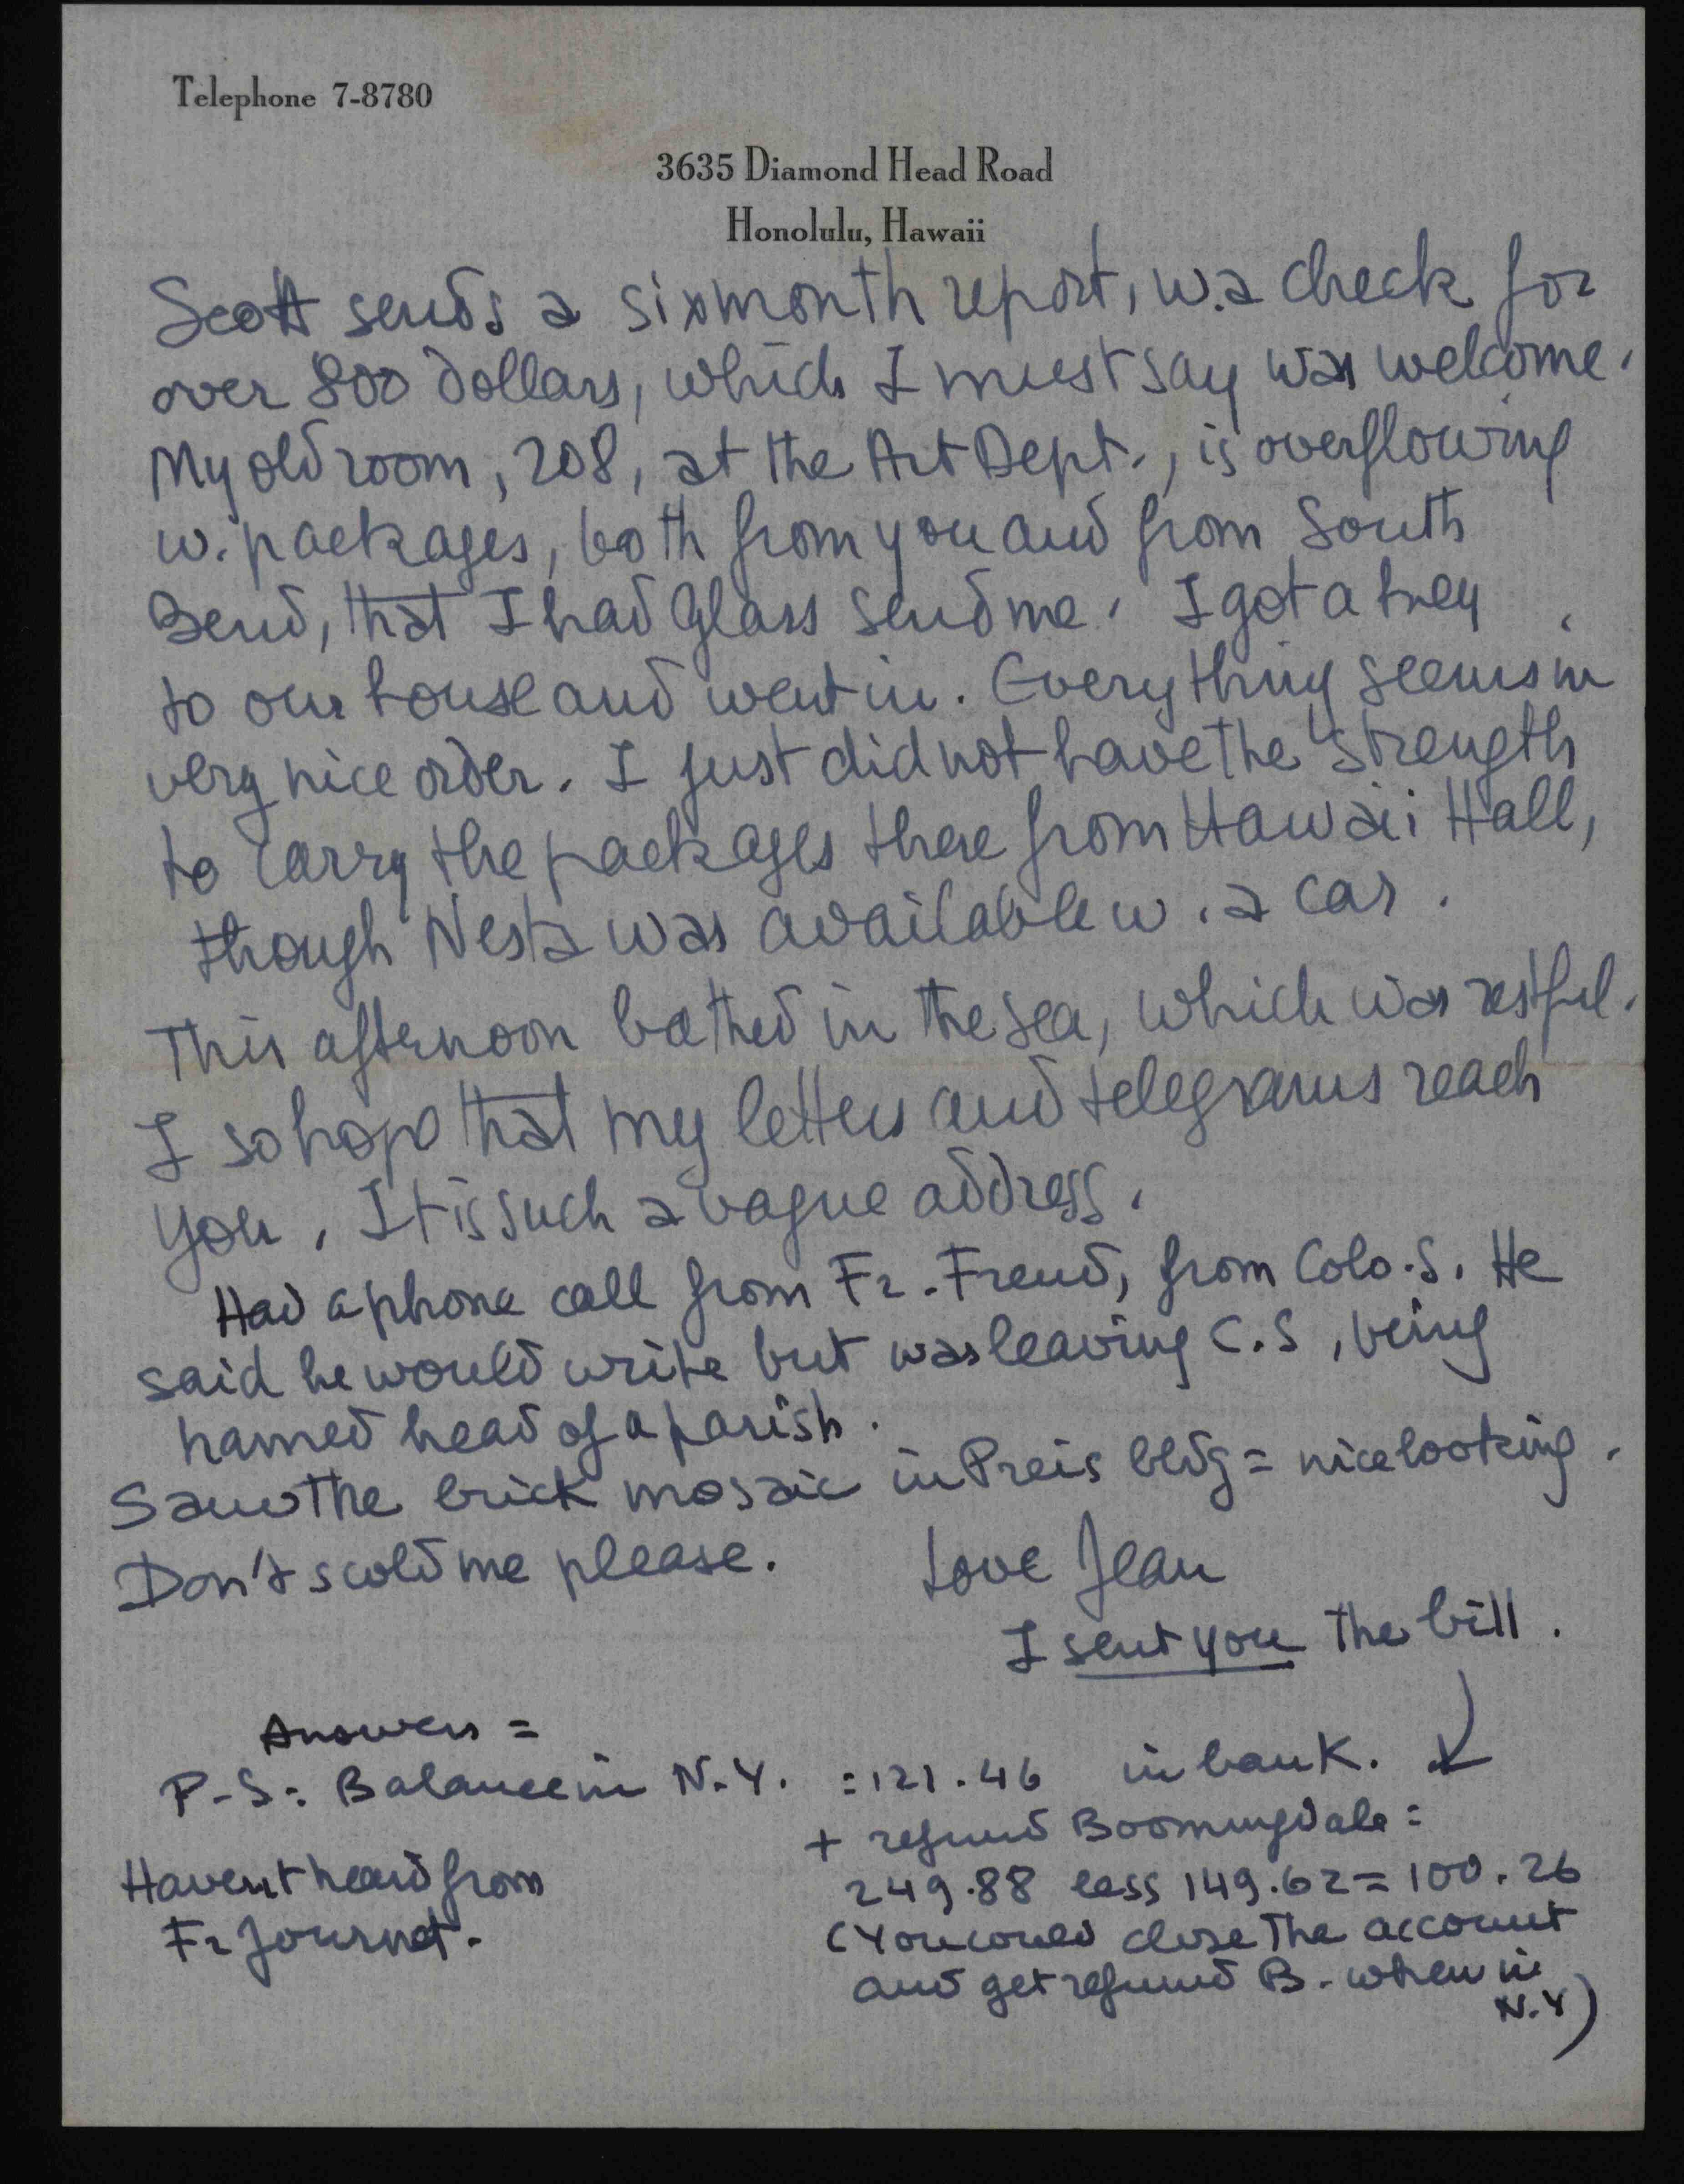 Telephone 7-8780
3635 Diamond Head Road
Honolulu, Hawaii
Scott sends a sixmonth report, w. a check for
over 800 dollars, which I must say was welcome.
My old room, 208, at the Art Dept., is overflowing
w. packages, both from you and from South
Bend, that I had Glass send me. I got a key
to our house and went in. Everything seems in
very nice order. I just did not have the strength
to carry the packages there from Hawaii Hall,
though Nesta was available w. a car.
This afternoon bathed in the sea, which was restful.
I so hope that my letters and telegrams reach
you. It is such a vague address.
Had a phone call from Fr. Freud, from Colo. S. He
said he would write but was leaving C.S, being
named head of a parish.
Saw the brick mosaic in Preis bldg = nice looking.
Don't scold me please. Love Jean
I sent you the bill.
Answers =
P-S: Balance in N.Y. : 121.46 in bank.
+ refund Boomingdale :
249.88 less 149.62 = 100.26
(You could close the account
and get refund B. when in
N.Y)
Havent heard from
Fr Journet.